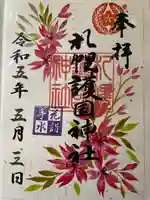 奉拝
札幌護国神社
令和五年五月三日
花詣
手水